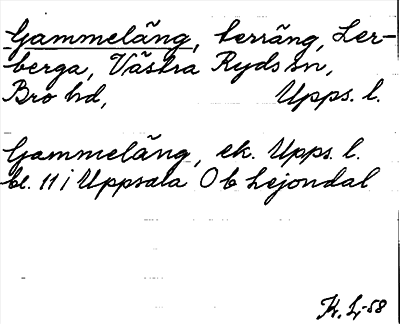 Gammeläng, terräng, Ler-
berga, Västra Ryds sn,
Bro hd, Upps. l.
Gammeläng, ek. Upps. l.
bl. 11 i Uppsala Ob Lejondal
K. L-58